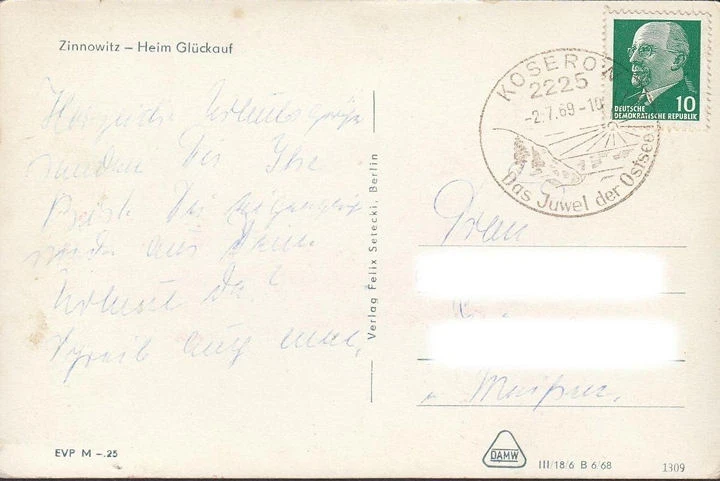 Zinnowitz – Heim Glückauf
Herzliche Urlaubsgrüße
senden Dir Ihe
Bist Du
wieder aus Deinem
Urlaub da?
Schreib auch mal,
EVP M –.25
Verlag Felix Setecki, Berlin
KOSEROW
2225
-2.7.69-10
Das Juwel der Ostsee
10
DEUTSCHE
DEMOKRATISCHE REPUBLIK
Frau
Meißen
DAMW
III/18/6 B 6/68
1309